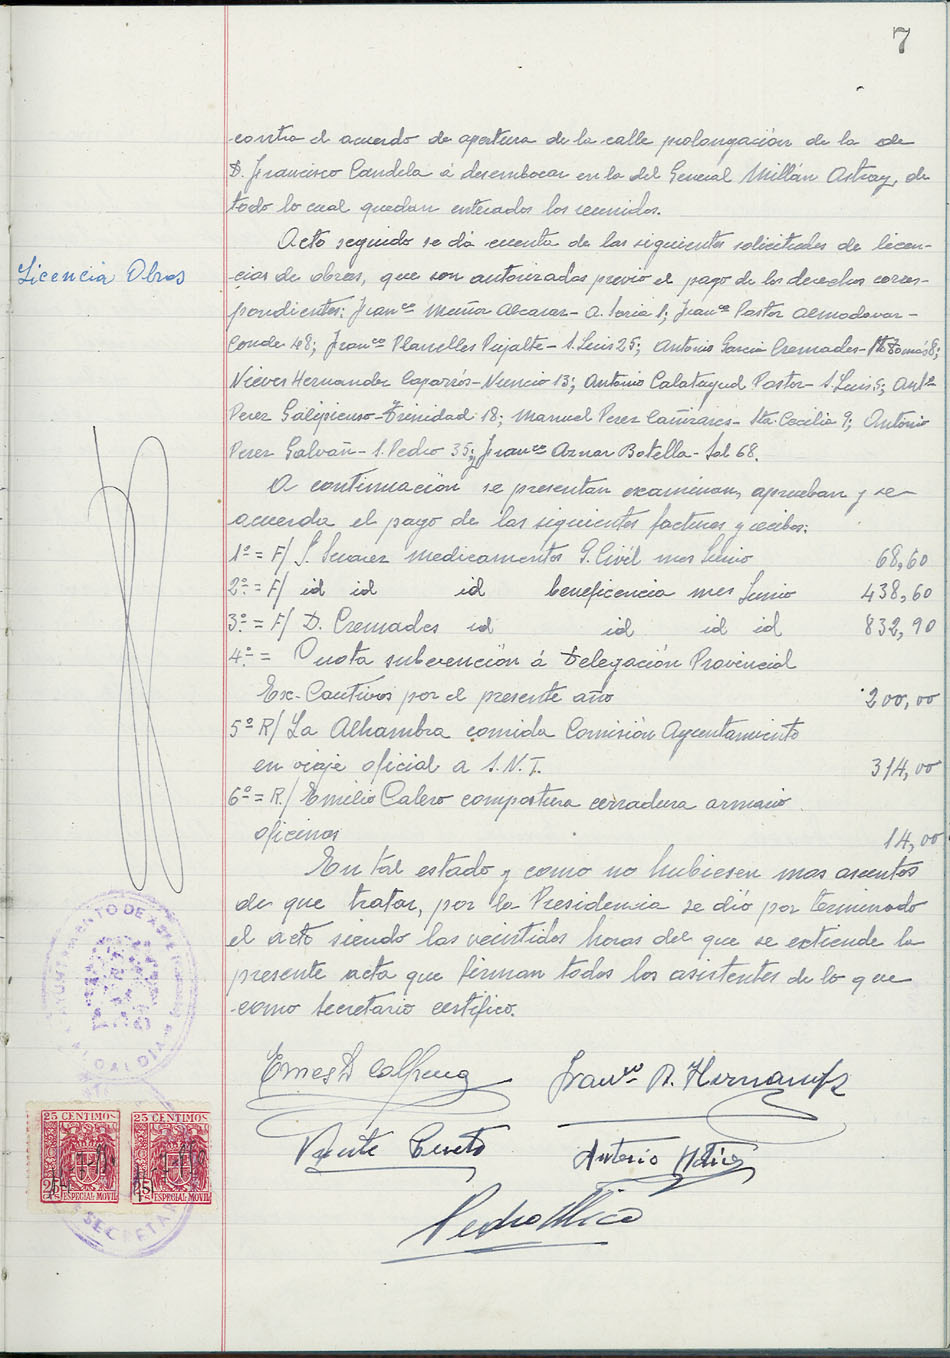 7
contra el acuerdo de apertura de la calle prolongación de la de
D. Francisco Candela á desembocar en la del General Millán Astray, de
todo lo cual quedan enterados los reunidos.
Acto seguido se dá cuenta de las siguientes solicitudes de licen-
Licencia Obras
cias de obras, que son autorizadas previo el pago de los derechos corres-
pondientes: Franco Muñoz Alcaraz - A. Soria 1; Franco Pastor Almodovar -
Conde 48; Franco Planelles Pujalte - S. Luis 25; Antonio Garcia Cremades - Sto Tomás 8;
Nieves Hernandez Caparrós - Nuncio 13; Antonio Calatayud Pastor - S. Luis 5; Anto
Perez Galipienso - Trinidad 18; Manuel Perez Cañizares - Sta. Cecilia 9; Antonio
Perez Galvañ - S. Pedro 35; y Franco Aznar Botella - Sol 68.
A continuación se presentan examinan, aprueban y se
acuerda el pago de las siguientes facturas y recibos:
1º = F/ S. Suarez medicamentos G. Civil mes Junio 68,60
2º = F/ id id id beneficencia mes Junio 438,60
3º = F/ D. Cremades id id id id 832,90
4º = Cuota subvención á Delegación Provincial
Ex-Cautivos por el presente año 200,00
5º R/ La Alhambra comida Comisión Ayuntamiento
en viaje oficial a S.N.T. 314,00
6º = R/ Emilio Calero compostura cerradura armario
oficinas 14,00
En tal estado y como no hubiesen mas asuntos
de que tratar, por la Presidencia se dió por terminado
el acto siendo las veintidos horas del que se extiende la
presente acta que firman todos los asistentes de lo que
como secretario certifico.
AYUNTAMIENTO DE
ALCALDIA
Franco A. Hernandez
Antonio
Pedro Mico
25 CENTIMOS
25 CENTIMOS
25
25
ESPECIAL MOVIL
ESPECIAL MOVIL
SECRETARIA